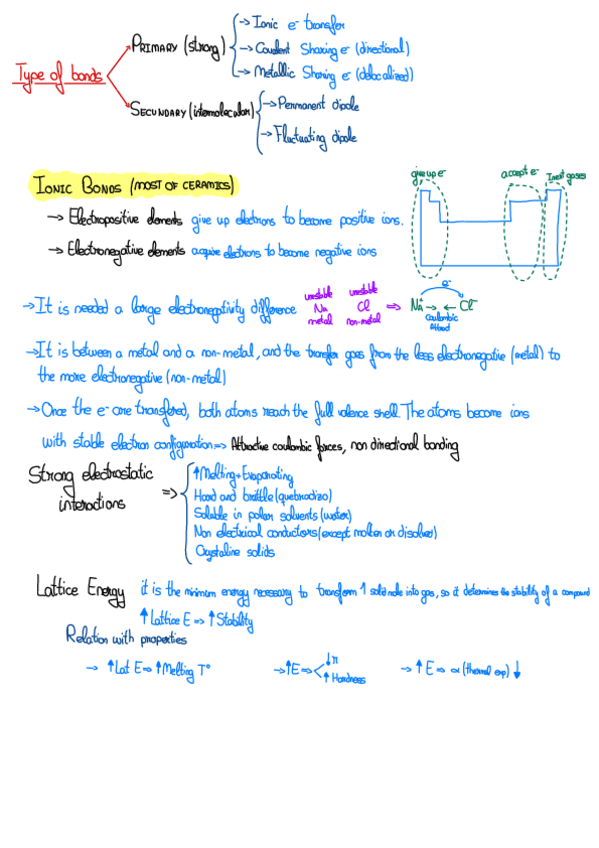 Type of bonds
PRIMARY (strong)
→ Ionic e⁻ transfer
→ Covalent Sharing e⁻ (directional)
→ Metallic Sharing e⁻ (delocalized)
SECUNDARY (intermolecular)
→ Permanent dipole
→ Fluctuating dipole
IONIC BONDS (MOST OF CERAMICS)
→ Electropositive elements give up electrons to become positive ions.
→ Electronegative elements acquire electrons to become negative ions
give up e⁻
accept e⁻
Inert gases
→ It is needed a large electronegativity difference
unstable unstable
Na Cl ⇒ Na⁺ → ← Cl⁻
metal non-metal
e⁻
coulombic
Attract
→ It is between a metal and a non-metal, and the transfer goes from the less electronegative (metal) to
the more electronegative (non-metal)
→ Once the e⁻ are transferred, both atoms reach the full valence shell. The atoms become ions
with stable electron configuration ⇒ Attractive coulombic forces, non directional bonding
Strong electrostatic
interactions ⇒
↑ Melting + Evaporating
Hard and brittle (quebradizo)
Soluble in polar solvents (water)
Non electrical conductors (except molten or disolved)
Crystaline solids
Lattice Energy it is the minimum energy necessary to transform 1 solid mole into gas, so it determines the stability of a compound
↑ Lattice E ⇒ ↑ Stability
Relation with properties
→ ↑ Lat E ⇒ ↑ Melting Tº
→ ↑ E ⇒ ↓ n
↑ Hardness
→ ↑ E ⇒ α (thermal exp) ↓